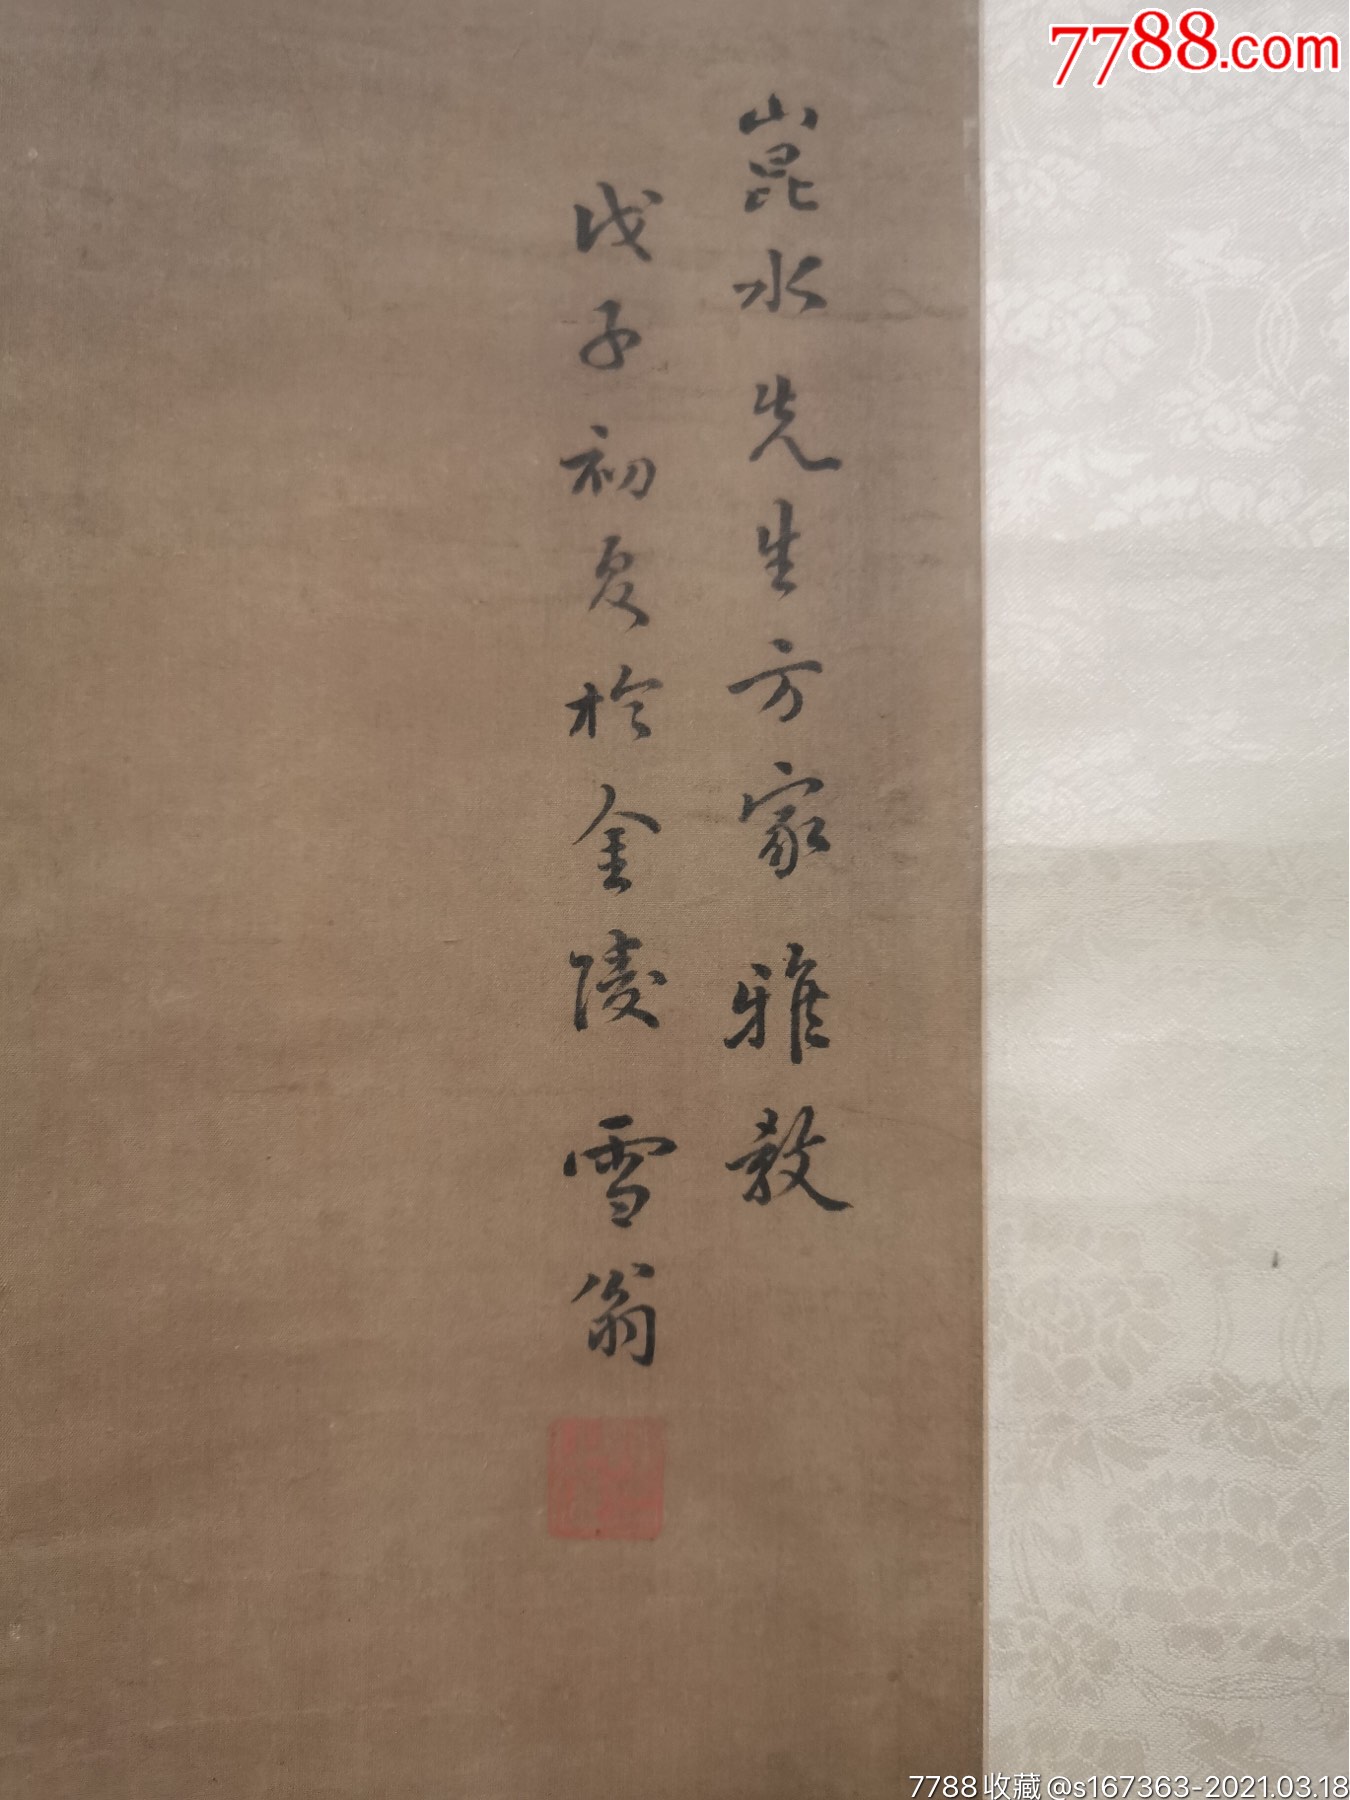 7788.com
崑水先生方家雅教
戊子初夏於金陵 雪翁
7788收藏@s167363-2021.03.18